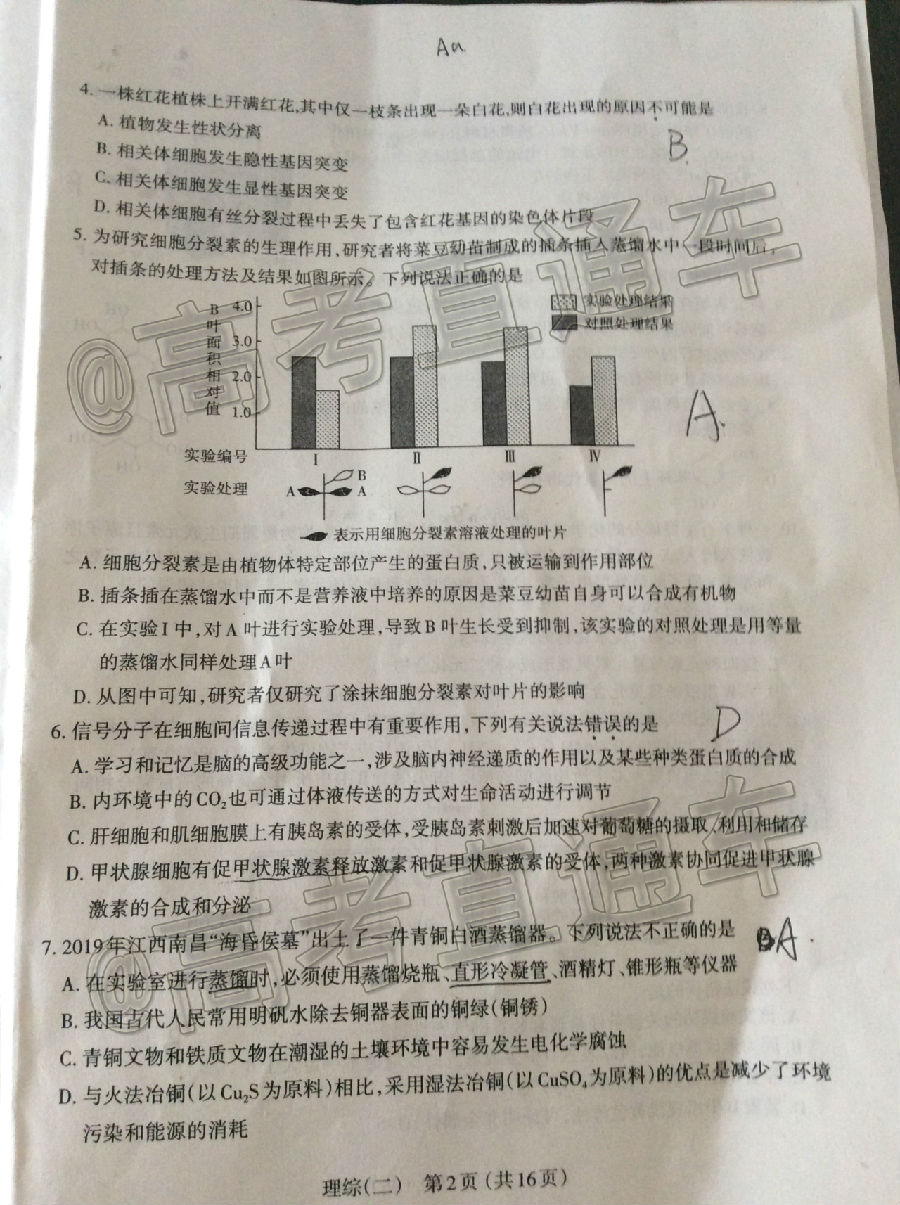 Aa
4. 一株红花植株上开满红花,其中仅一枝条出现一朵白花,则白花出现的原因不可能是
A. 植物发生性状分离
B. 相关体细胞发生隐性基因突变
B
C. 相关体细胞发生显性基因突变
D. 相关体细胞有丝分裂过程中丢失了包含红花基因的染色体片段
5. 为研究细胞分裂素的生理作用,研究者将菜豆幼苗制成的插条插入蒸馏水中一段时间后,
对插条的处理方法及结果如图所示。下列说法正确的是
B叶面积相对值
4.0
3.0
2.0
1.0
实验处理结果
对照处理结果
A.
实验编号 I II III IV
实验处理 A A B
表示用细胞分裂素溶液处理的叶片
A. 细胞分裂素是由植物体特定部位产生的蛋白质,只被运输到作用部位
B. 插条插在蒸馏水中而不是营养液中培养的原因是菜豆幼苗自身可以合成有机物
C. 在实验I中,对A叶进行实验处理,导致B叶生长受到抑制,该实验的对照处理是用等量
的蒸馏水同样处理A叶
D. 从图中可知,研究者仅研究了涂抹细胞分裂素对叶片的影响
6. 信号分子在细胞间信息传递过程中有重要作用,下列有关说法错误的是
D
A. 学习和记忆是脑的高级功能之一,涉及脑内神经递质的作用以及某些种类蛋白质的合成
B. 内环境中的CO₂也可通过体液传送的方式对生命活动进行调节
C. 肝细胞和肌细胞膜上有胰岛素的受体,受胰岛素刺激后加速对葡萄糖的摄取、利用和储存
D. 甲状腺细胞有促甲状腺激素释放激素和促甲状腺激素的受体,两种激素协同促进甲状腺
激素的合成和分泌
7. 2019年江西南昌“海昏侯墓”出土了一件青铜白酒蒸馏器。下列说法不正确的是
A.
A. 在实验室进行蒸馏时,必须使用蒸馏烧瓶、直形冷凝管、酒精灯、锥形瓶等仪器
B. 我国古代人民常用明矾水除去铜器表面的铜绿(铜锈)
C. 青铜文物和铁质文物在潮湿的土壤环境中容易发生电化学腐蚀
D. 与火法冶铜(以Cu₂S为原料)相比,采用湿法冶铜(以CuSO₄为原料)的优点是减少了环境
污染和能源的消耗
理综(二) 第2页(共16页)
@高考直通车
@高考直通车